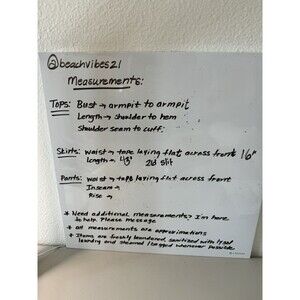 @beachvibes21
Measurements:
Tops: Bust → armpit to armpit
Length → shoulder to hem
Shoulder seam to cuff:
Skirts: waist → tape laying flat across front 16"
length →
slit
Pants: waist → tape laying flat across front
Inseam →
Rise →
* Need additional measurements? I'm here
to help. Please Message
* all measurements are approximations
* Items are freshly laundered, sanitized with lysol
laundry and steamed / tagged whenever possible